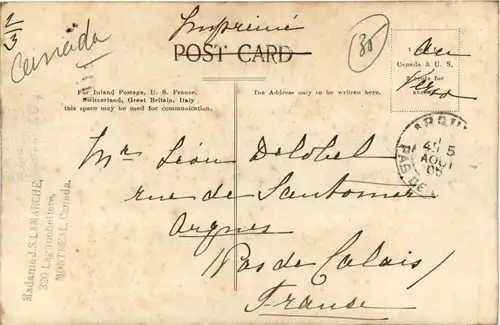 2/3
Canada
Imprimé
POST CARD
30
au
Verso
Canada & U. S.
For Inland Postage, U. S. France,
Switzerland, Great Britain, Italy
this space may be used for communication.
The Address only to be written here.
ARQU
AOUT
05
PAS DE
Mr Léon Delobel
rue de Santomer
Arques
Pas de Calais/
France
Madame J.S. LAMARCHE,
320 Lagauchetiere,
MONTREAL, Canada.